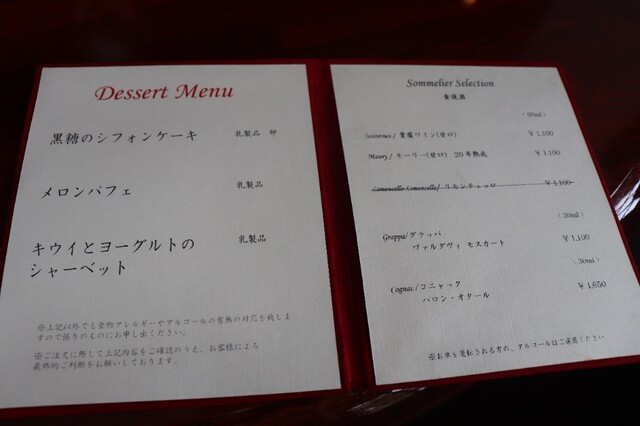 Dessert Menu
黒糖のシフォンケーキ 乳製品 卵
メロンパフェ 乳製品
キウイとヨーグルトの 乳製品
シャーベット
※上記以外でも食物アレルギーやアルコールの有無の対応を致しま
すので係りのものにお申し出ください。
※ご注文に際して上記内容をご確認のうえ、お客様による
最終的ご判断をお願いしております。
Sommelier Selection
食後酒
(60ml)
Sauternes/ 貴腐ワイン(甘口) ¥1,100
Maury/ モーリー(甘口) 20年熟成 ¥1,100
Limoncello Limoncello/ リモンチェッロ ¥1,100
(30ml)
Grappa/グラッパ
ヴァルダヴィ モスカート ¥1,100
(30ml)
Cognac/コニャック ¥1,650
バロン・オタール
※お車を運転される方の、アルコールはご遠慮ください